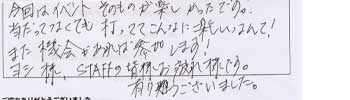 今回はイベントそのものが楽しかったです。
当だってなくても打っててこんなに楽しいなんて!
また機会があれば参加します!
ヨシ様、STAFFの皆様お疲れ様です。
有り難うございました。